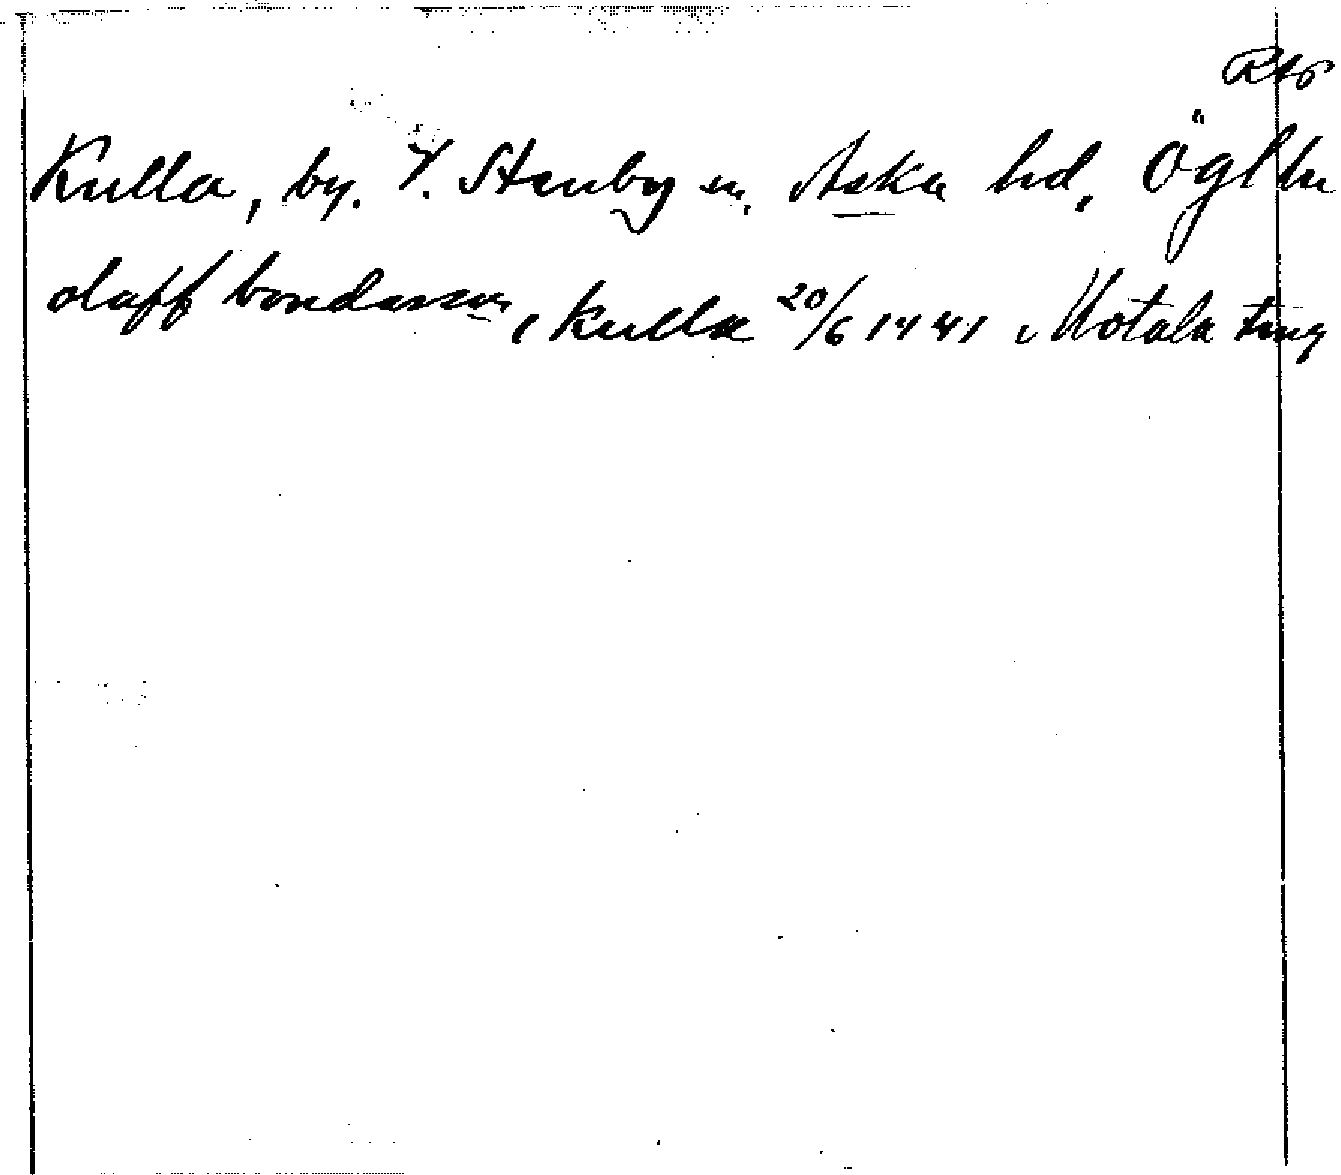 Kulla, by. V. Stenby sn, Aska hd, Ögl ln
olaff bondasson, i Kulla 20/6 1441 i Motala ting